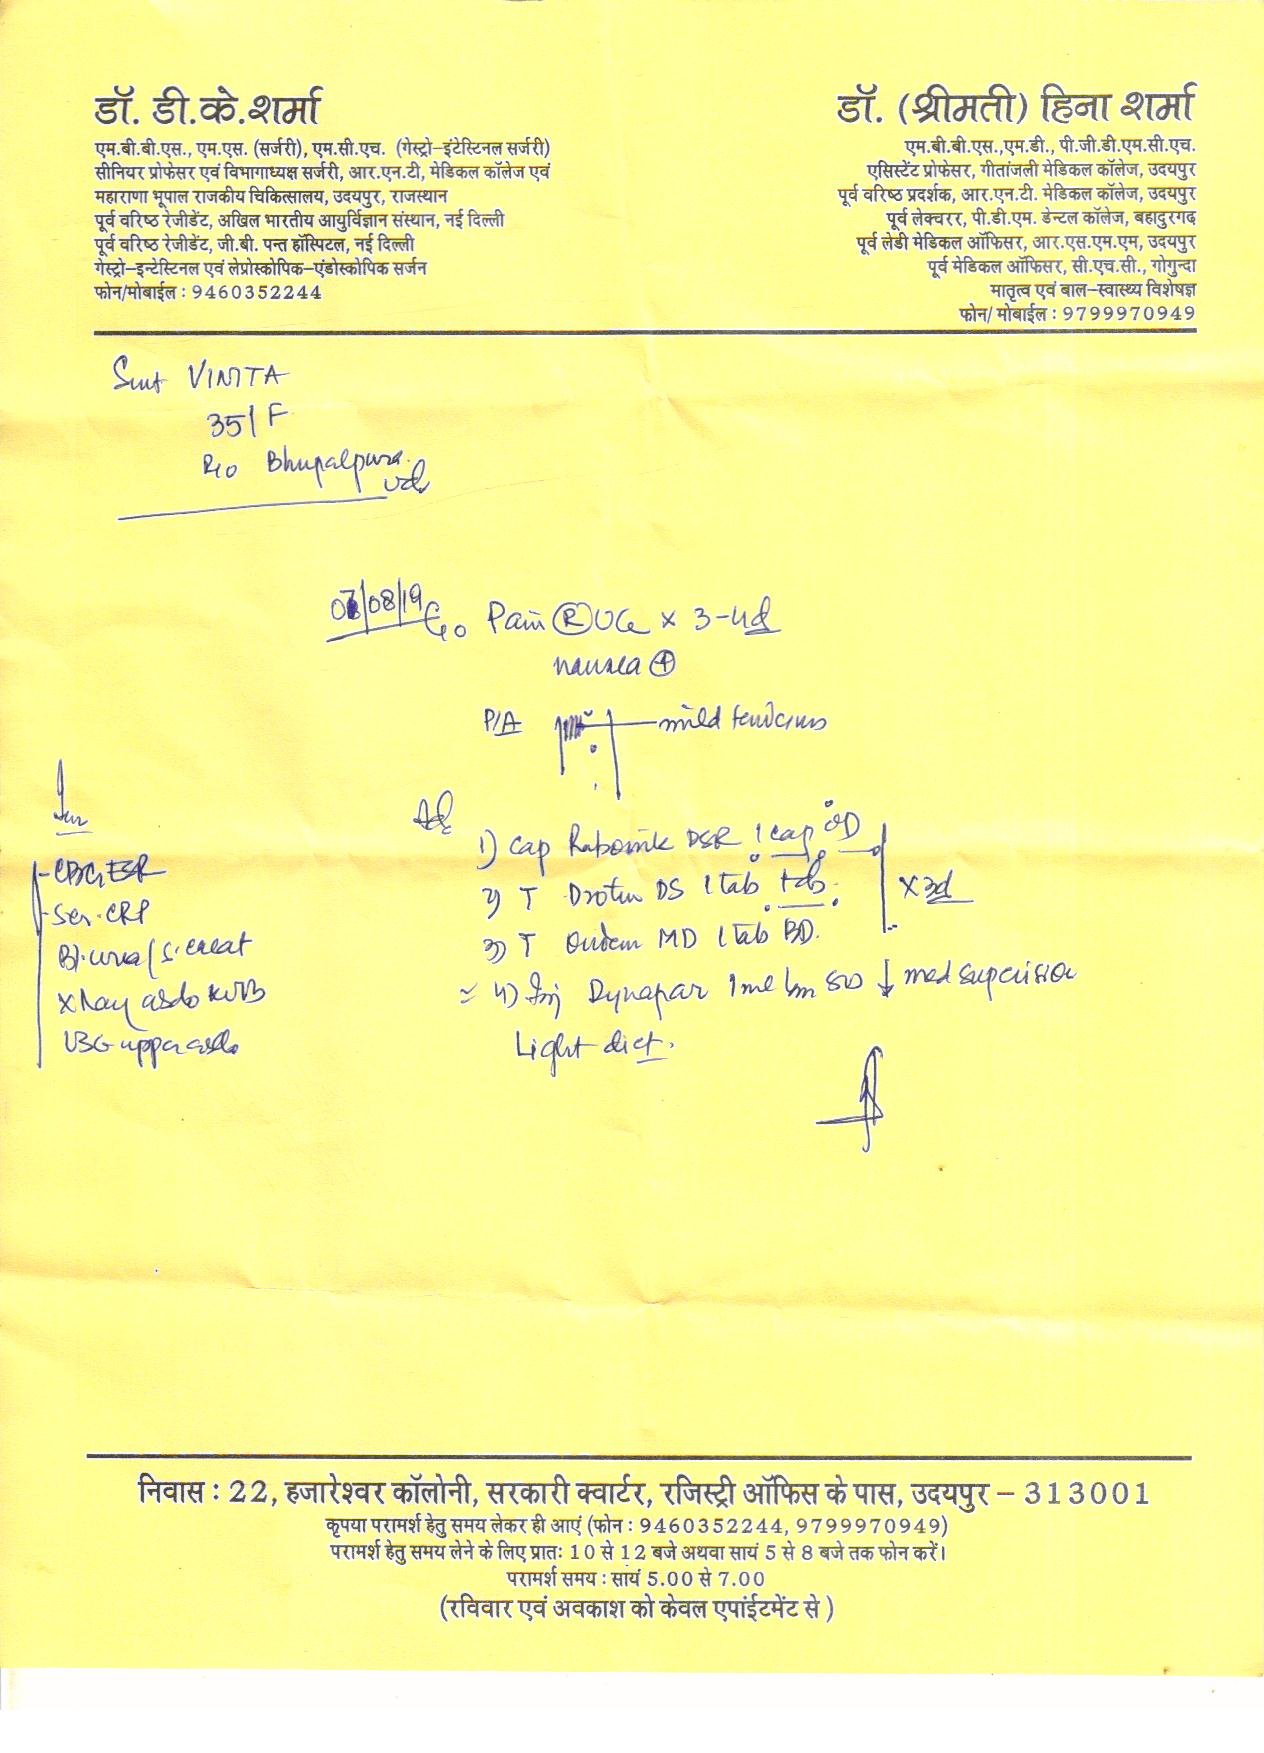 डॉ. डी.के.शर्मा
एम.बी.बी.एस., एम.एस. (सर्जरी), एम.सी.एच. (गेस्ट्रो-इंटेस्टिनल सर्जरी)
सीनियर प्रोफेसर एवं विभागाध्यक्ष सर्जरी, आर.एन.टी, मेडिकल कॉलेज एवं
महाराणा भूपाल राजकीय चिकित्सालय, उदयपुर, राजस्थान
पूर्व वरिष्ठ रेजीडेंट, अखिल भारतीय आयुर्विज्ञान संस्थान, नई दिल्ली
पूर्व वरिष्ठ रेजीडेंट, जी.बी. पन्त हॉस्पिटल, नई दिल्ली
गेस्ट्रो-इन्टेस्टिनल एवं लेप्रोस्कोपिक-एंडोस्कोपिक सर्जन
फोन/मोबाईल : 9460352244
डॉ. (श्रीमती) हिना शर्मा
एम.बी.बी.एस.,एम.डी., पी.जी.डी.एम.सी.एच.
एसिस्टेंट प्रोफेसर, गीतांजली मेडिकल कॉलेज, उदयपुर
पूर्व वरिष्ठ प्रदर्शक, आर.एन.टी. मेडिकल कॉलेज, उदयपुर
पूर्व लेक्चरर, पी.डी.एम. डेन्टल कॉलेज, बहादुरगढ़
पूर्व लेडी मेडिकल ऑफिसर, आर.एस.एम.एम, उदयपुर
पूर्व मेडिकल ऑफिसर, सी.एच.सी., गोगुन्दा
मातृत्व एवं बाल-स्वास्थ्य विशेषज्ञ
फोन/ मोबाईल : 9799970949
Smt VINITA
35/F
R/o Bhupalpura
Ud
07/08/19 C/o Pain Ⓡ x 3-4d
nausea ⊕
P/A mild tenderness
Inv
CBC, ESR
Ser. CRP
Bl. urea / S. creat
X Ray abdo KUB
USG upper abdo
Ad
1) Cap Rabonik DSR 1 cap OD
2) T Drotin DS 1 tab tds x 3d
3) T Ondem MD 1 tab BD
4) Inj Dynapar 1ml Im ↓ med supervision
Light diet.
निवास : 22, हजारेश्वर कॉलोनी, सरकारी क्वार्टर, रजिस्ट्री ऑफिस के पास, उदयपुर – 313001
कृपया परामर्श हेतु समय लेकर ही आएं (फोन : 9460352244, 9799970949)
परामर्श हेतु समय लेने के लिए प्रातः 10 से 12 बजे अथवा सायं 5 से 8 बजे तक फोन करें।
परामर्श समय : सायं 5.00 से 7.00
(रविवार एवं अवकाश को केवल एपांईटमेंट से )